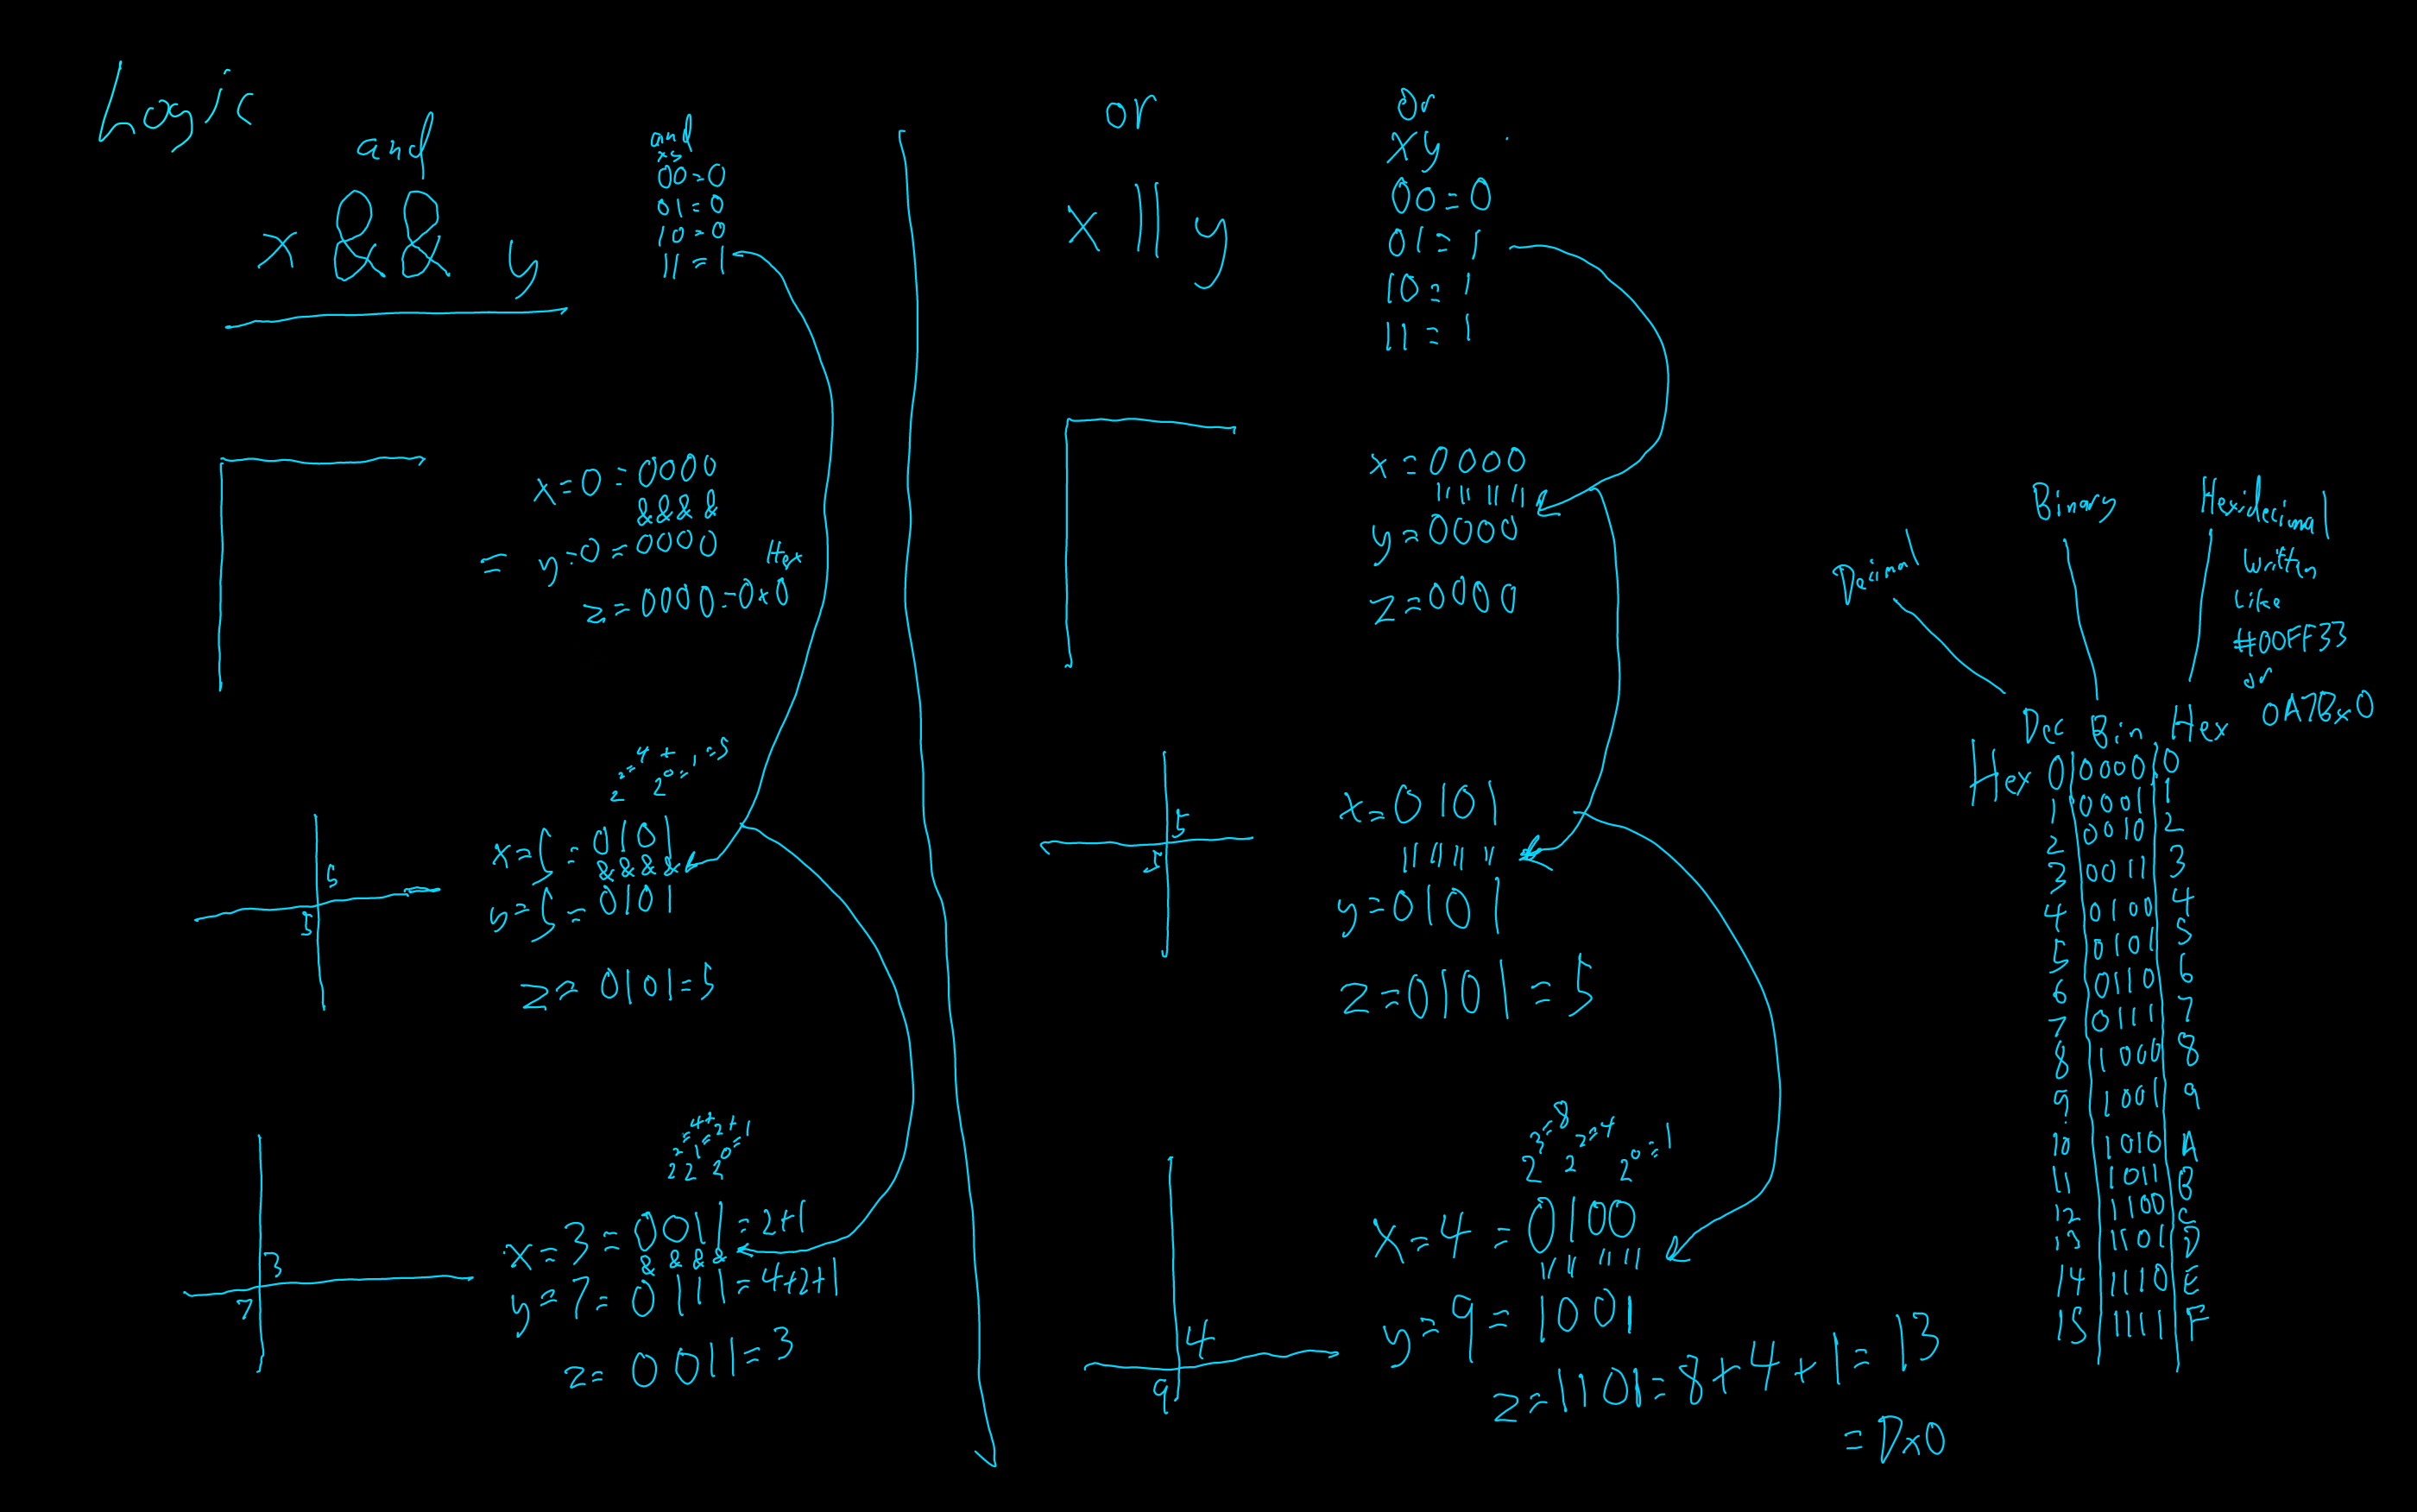 Logic
and
x && y
and
xy
00=0
01=0
10=0
11=1
x=0=0000
&&&&
= y=0=0000
Hex
z=0000=0x0
2²=4 + 2⁰=1=5
5
5
x=5=0101
&&&&
y=5=0101
z=0101=5
=4+2+1
2² 2¹= 2⁰=
3
7
x=3=0011=2+1
&&&&
y=7=0111=4+2+1
z=0011=3
or
x || y
Or
xy
00=0
01=1
10=1
11=1
x=0000
|| || || ||
y=0000
z=0000
5
5
x=0101
|| || || ||
y=0101
z=0101=5
2³=8 2²=4 2⁰=1
4
9
x=4=0100
|| || || ||
y=9=1001
z=1101=8+4+1=13
=Dx0
Decimal
Binary
Hexidecimal
written
like
#00FF33
or
0A7Bx0
Dec Bin Hex
Hex 0 0000 0
1 0001 1
2 0010 2
3 0011 3
4 0100 4
5 0101 5
6 0110 6
7 0111 7
8 1000 8
9 1001 9
10 1010 A
11 1011 B
12 1100 C
13 1101 D
14 1110 E
15 1111 F